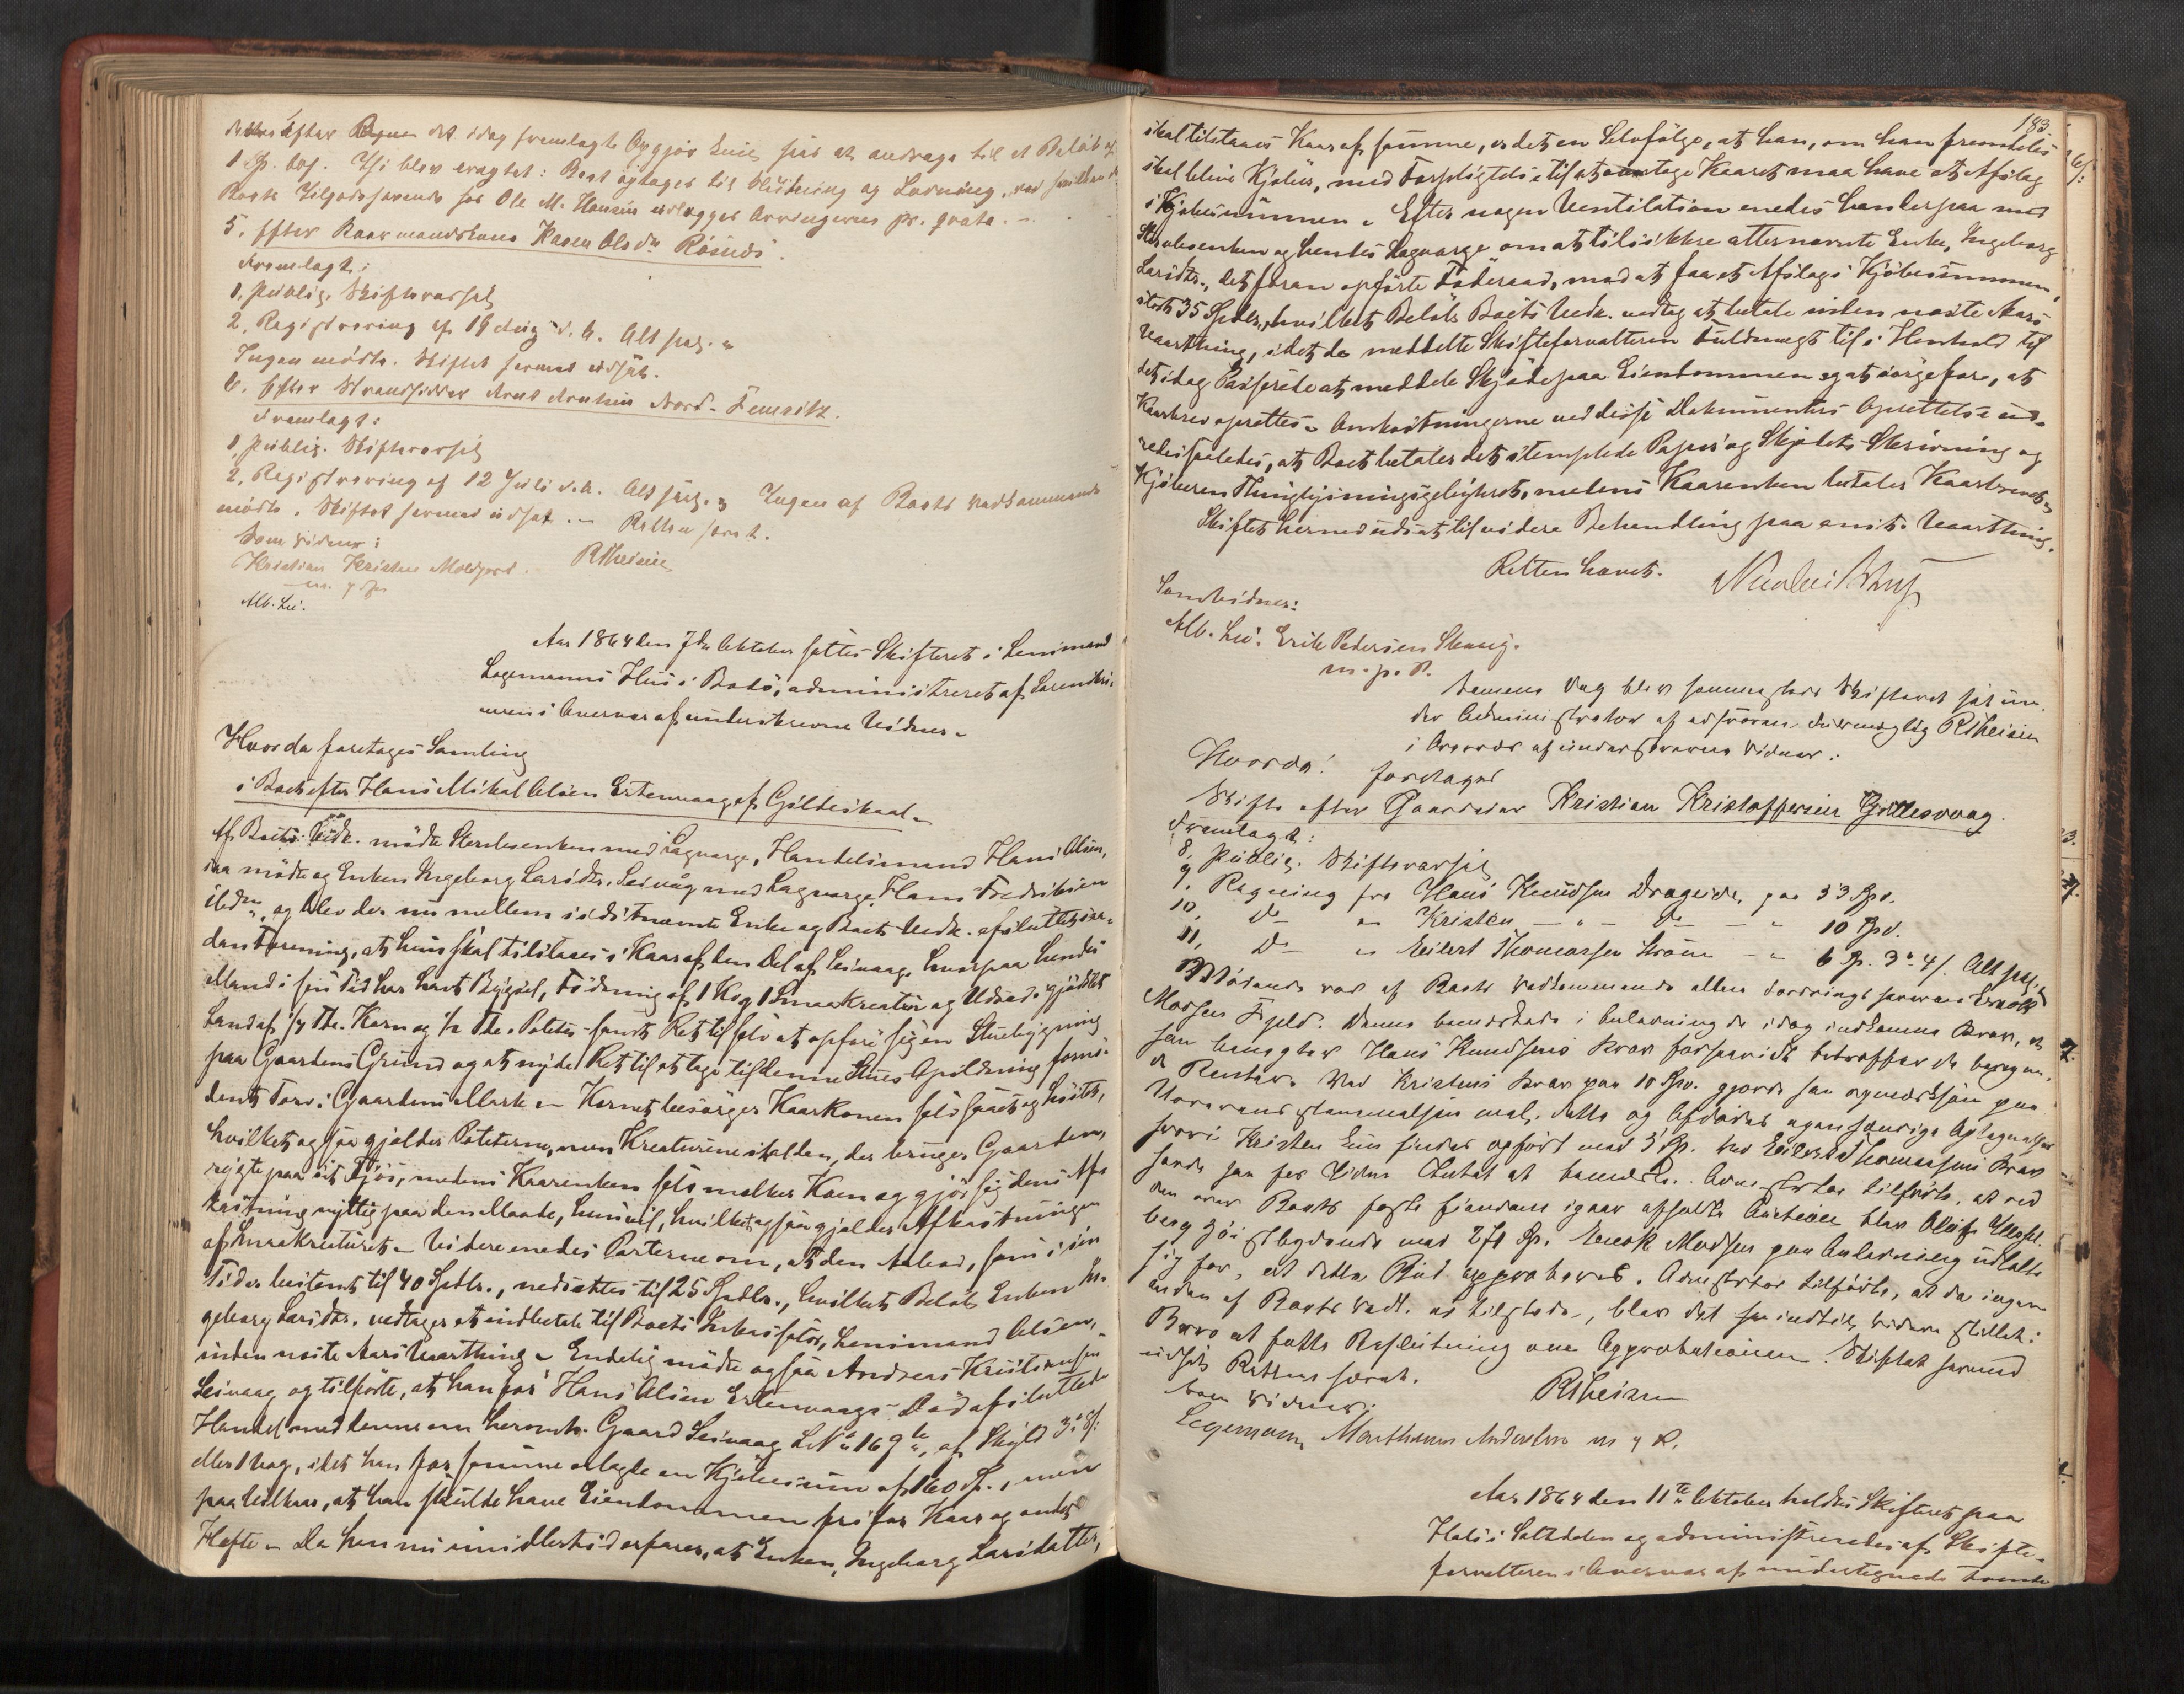 efter det idag fremlagte Opgjør kun sees at andrage til et Beløb af
1 Sp. Thi blev eragtet: Boet optages til Slutning og Lodning, ved hvilken
Boets Tilgodehavende hos Ole M. Hansen udlægges Arvingerne pr. qvota. -
5. Efter Kaarmandskone Karen Olsdr Røsnæs.
Fremlagt:
1, Publiq. Skiftevarsel
2, Registrering af 19 Aug. d. A. Alt
Ingen mødte. Skiftet hermed udsat.
6. Efter Strandsidder Arnt Arntsen Nord-
Fremlagt:
1, Publiq. Skiftevarsel
2, Registrering af 12 Juli d. A. Alt Ingen af Boets Vedkommende
mødte. Skiftet hermed udsat. - Retten hævet.
Som Vidner: RTheisen
Kristian Kristen Moldjord.
m. p. P.
Alb. Lie.
Aar 1864 den 7de Oktober sattes Skifteret i Lensmand
Legemanns Hus i Bodø, administreret af Sorenskri-
veren i Overvær af underskrevne Vidner -
Hvorda foretoges Samling
i Boet efter Hans Mikal Olsen Ertenvaag af Gildeskaal -
Af Boets Vedk. mødte Sterbsenken med Lagværge, Handelsmand Hans Olsen,
saa mødte og Enken Ingeborg Larsdtr. Seivåg med Lagværge Hans Fredriksen
ibdm, og blev der nu mellem sidstnævnte Enke og Boets Vedk. afsluttet saa-
dan Forening, at hun skal tilstaaes i Kaar af den Del af Seivaag, hvorpaa hendes
Mand i sin Tid har havt Bygsel, Fødning af 1 Ko og 1 Smaakreatur og Udsæd i gjødslet
Land af 1/4 Tde. Korn og 1/2 Tde. Poteter samt Ret til selv at opføre sig en Stuebygning
paa Gaardens Grund og at nyde Ret til at tage til denne Stues Opildning forns-
dent Torv i Gaardens Mark - Kornet besørger Kaarkonen selv saaet og høstet,
hvilket ogsaa gjælder Poteterne, men Kreaturene skal den, der bruger Gaarden,
røgte paa sit Fjøs, medens Kaarenken selv melker Koen og gjør sig dens Af-
kastning nyttig paa den Maade, hun vil, hvilket ogsaa gjælder Afkastningen
af Smaakreaturet. - Videre enedes Parterne om, at den Aabod, som i sin
Tid er bestemt til 40 Spdlr., nedsættes til 25 Spdlr., hvilket Beløb Enken In-
geborg Larsdtr. vedtager at indbetale til Boets Inkassator, Lensmand Olsen,
inden næste Aars Vaarthing - Endelig mødte ogsaa Andreas Kristensen
Seivaag og tilførte, at han før Hans Olsen Ertenvaags Død afsluttede
Handel med denne om heromh. Gaard Seivaag LNo 169 b, af Skyld 3 . 8 /:
eller 1 Vog, idet han for samme erlagde en Kjøbesum af 160 Sp., men
paa Vilkaar, at han skulde have Eiendommen fri for Kaar og andet
Hefte - Da han nu imidlertid erfarer, at Enken, Ingeborg Larsdatter,
183.
skal tilstaaes Kaar af samme, er det en Selvfølge, at han, om han fremdeles
skal blive Kjøber, med Forpligtelse til at modtage Kaaret maa have et Afslag
i Kjøbesummen - Efter nogen Ventilation enedes han derpaa med
Sterbsenken og hendes Lagværge om at tilsikkre atternævnte Enke, Ingeborg
Larsdtr., det foran opførte Føderaad, mod at faa et Afslag i Kjøbesummen,
stort 35 Spdlr., hvilket Beløb Boets Vedk. vedtog at betale inden næste Aars
Vaarthing, idet de meddelte Skifteforvalteren Fuldmagt til i Henhold til
det idag Passerede at meddele Skjøde paa Eiendommen og at sørge for, at
Kaarbrev oprettes - Omkostningerne ved disse Dokumenters Oprettelse ud-
redes saaledes, at Boet betaler det stemplede Papir og Skjødets Skrivning og
Kjøberen Thinglysningsgebyhret, medens Kaarenken betaler Kaarbrevet -
Skiftet hermed udsat til videre Behandling paa anst. Vaarthing.
Retten hævet.
Som Vidner:
Alb. Lie. Erik Pedersen Skaug.
m. p. P.
Samme Dag blev sammesteds Skifteret sat un-
der Administration af edsvoren Fuldmægtig RTheisen
i Overvær af underskrevne Vidner:
Hvorda! foretoges
Skifte efter Gaardeier Kristian Kristoffersen Gillesvaag.
Fremlagt:
8, Publiq. Skiftevarsel
9, Regning fra Hans Knudsen Drageide, paa 53 Spd.
10, do " Kristen - " - do - " 10 Spd.
11, do " Eilert Thomassen Strøm - " 6 Sp. 3. 4/. Alt
Mødende var af Boets Vedkommende allene Fordringshaveren Enok
Madsen Fjeld. Denne bemærkede i Anledning de idag indkomne Krav, at
han benægter Hans Knudsens Krav forsaavidt betræffer de beregne-
de Renter. Ved Kristens Krav paa 10 Spd. gjorde han opmærksom paa
Uoverensstemmelsen mel. dette og Afdødes egenhændige Optegnelser
hvori Kristen kun findes opført med 5 Sp. Ved Eilert Thomassens Krav
havde han for Tiden Intet at bemærke. Administrator tilførte, at ved
den over Boets faste Eiendom igaar afholdte Auktion blev Oluf
berg høistbydende med 271 Sp. Enok Madsen paa Anledning udtalte
sig for, at dette Bud approberes. Administrator tilførte, at da ingen
anden af Boets Vedk. er tilstede, blev det saa indtil videre stillet i
Bero at fatte Beslutning om Approbationen. Skiftet hermed
udsat. Retten hævet.
Som Vidner: RTheisen
Legemann Marthinus Andersen m p P.
Aar 1864 den 11te Oktober holdtes Skifteret paa
Hals i Saltdalen og administreredes af Skifte-
forvalteren i Overvær af undertegnede tvende